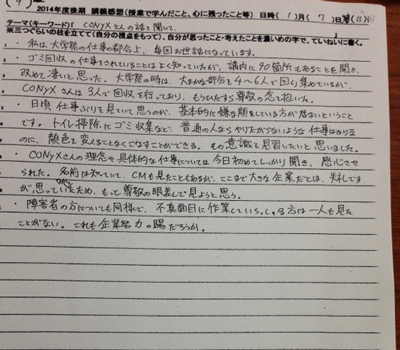 2014年度後期 講義感想(授業で学んだこと、心に残ったこと等) 日時( 1 )月( 7 )日
テーマ(キーワード):「CONYXさんの話を聞いて」
※三つぐらいの柱を立てて(自分の視点をもって)、自分が思ったこと・考えたことを濃いめの字で、ていねいに書く。
・私は大学院の仕事の都合上、毎回お世話になっています。
・ゴミ回収の仕事をされていることはよく知っていたが、構内に90箇所もあることを聞き、
改めて凄いと思った。大学院の時は、大まかな部分を4〜6人で回り集めているが、
CONYXさんは3人で回収を行っており、もうひたすら尊敬の念を抱いた。
・日頃仕事ぶりを見ていて思うのが、基本的に嫌な顔をしている方が居ないということ
です。トイレ掃除にゴミ収集など、普通の人ならやりたがらないような仕事はあるも
のに、顔色を変えることなくこなすことができる。その意識を見習いたいと思いました。
・CONYXさんの理念や具体的な仕事については今日初めてしっかり聞き、感心させ
られた。名前は知っていて、CMも見たこともあるが、ここまで大きな企業だとは、失礼です
が思っていなかったため、もっと尊敬の眼差しで見ようと思う。
・障害者の方についても同様で、不真面目に作業していらっしゃる方は一人も見た
ことがない。これも企業努力の賜だろうか。